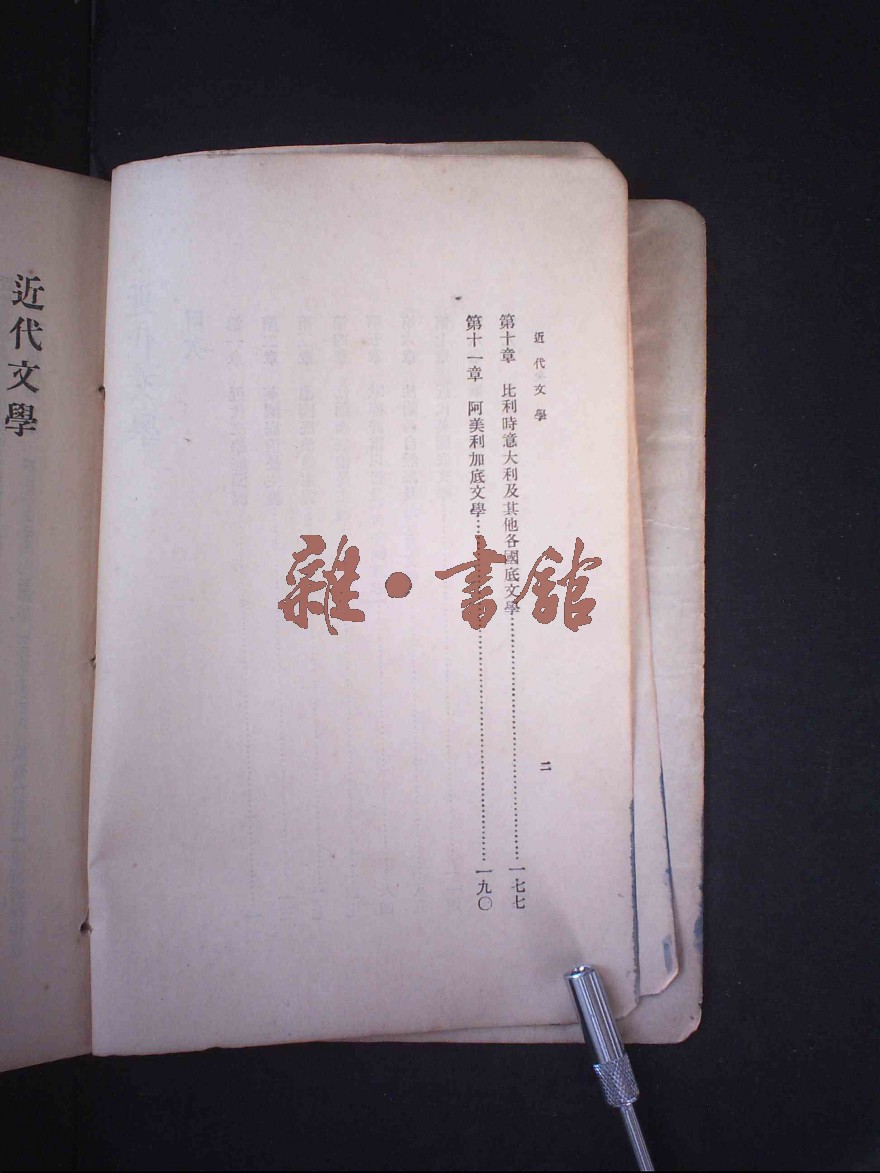 近代文學
二
第十章　比利時意大利及其他各國底文學……一七七
第十一章　阿美利加底文學……一九〇
雜・書館
近代文學